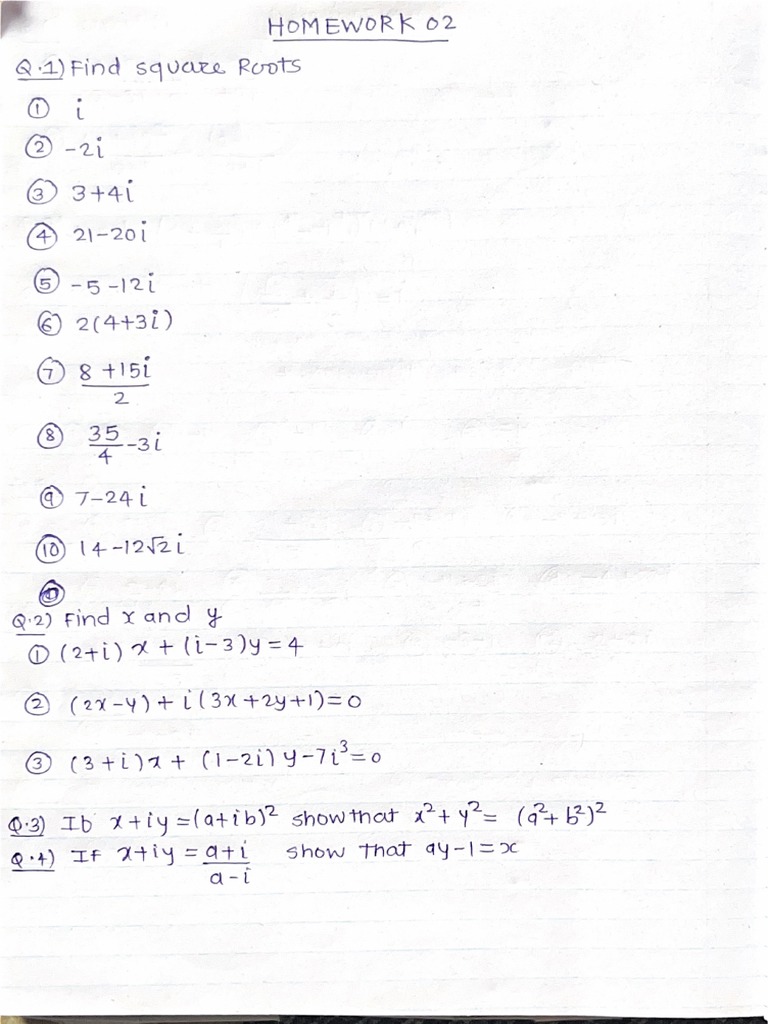 HOMEWORK 02
Q.1) Find square Roots
① i
② -2i
③ 3+4i
④ 21-20i
⑤ -5-12i
⑥ 2(4+3i)
⑦ 8+15i
2
⑧ 35/4-3i
⑨ 7-24i
⑩ 14-12√2i
Q.2) Find x and y
① (2+i)x + (i-3)y=4
② (2x-y)+i(3x+2y+1)=0
③ (3+i)x + (1-2i)y-7i³=0
Q.3) Ib x+iy=(a+ib)² show that x²+y²= (a²+b²)²
Q.4) If x+iy = a+i show that ay-1=x
a-i